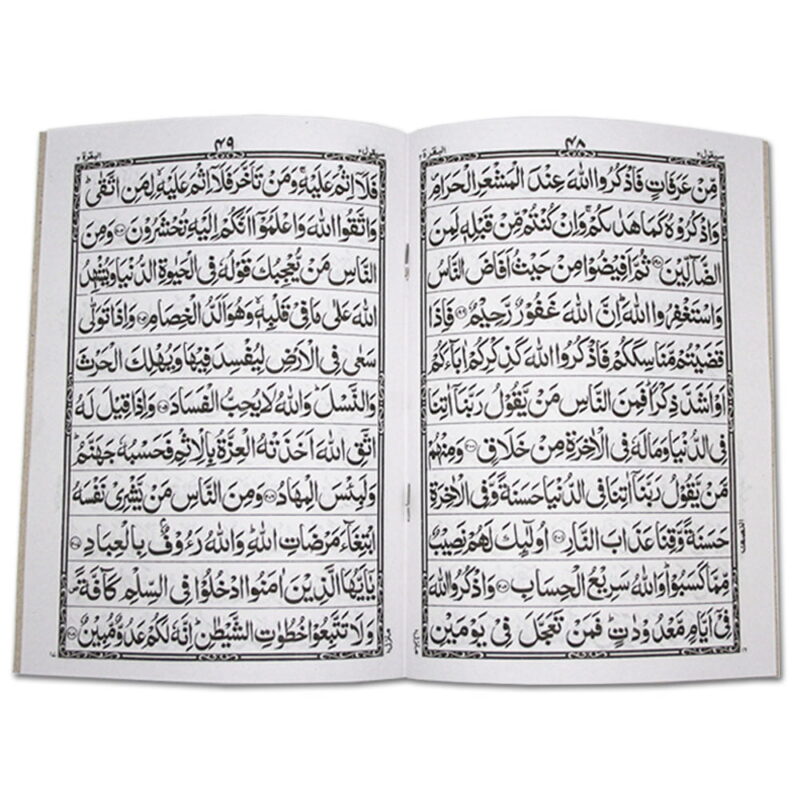 سیقول ۲ ۴۸ البقرة ۲
مِّنْ عَرَفَاتٍ فَاذْكُرُوا اللّٰهَ عِنْدَ الْمَشْعَرِ الْحَرَامِ
وَاذْكُرُوْهُ كَمَا هَدٰىكُمْ ۚ وَاِنْ كُنْتُمْ مِّنْ قَبْلِهٖ لَمِنَ
الضَّآلِّيْنَ ۱۹۸ ثُمَّ اَفِيْضُوْا مِنْ حَيْثُ اَفَاضَ النَّاسُ
وَاسْتَغْفِرُوا اللّٰهَ ؕ اِنَّ اللّٰهَ غَفُوْرٌ رَّحِيْمٌ ۱۹۹ فَاِذَا
قَضَيْتُمْ مَّنَاسِكَكُمْ فَاذْكُرُوا اللّٰهَ كَذِكْرِكُمْ اٰبَآءَكُمْ
اَوْ اَشَدَّ ذِكْرًا ؕ فَمِنَ النَّاسِ مَنْ يَّقُوْلُ رَبَّنَآ اٰتِنَا
فِى الدُّنْيَا وَمَا لَهٗ فِى الْاٰخِرَةِ مِنْ خَلَاقٍ ۲۰۰ وَمِنْهُمْ
مَّنْ يَّقُوْلُ رَبَّنَآ اٰتِنَا فِى الدُّنْيَا حَسَنَةً وَّفِى الْاٰخِرَةِ
حَسَنَةً وَّقِنَا عَذَابَ النَّارِ ۲۰۱ اُولٰٓئِكَ لَهُمْ نَصِيْبٌ
مِّمَّا كَسَبُوْا ؕ وَاللّٰهُ سَرِيْعُ الْحِسَابِ ۲۰۲ وَاذْكُرُوا اللّٰهَ
فِىْٓ اَيَّامٍ مَّعْدُوْدٰتٍ ؕ فَمَنْ تَعَجَّلَ فِىْ يَوْمَيْنِ
النصف
سیقول ۲ ۴۹ البقرة ۲
فَلَآ اِثْمَ عَلَيْهِ ۚ وَمَنْ تَاَخَّرَ فَلَآ اِثْمَ عَلَيْهِ ۙ لِمَنِ اتَّقٰى ؕ
وَاتَّقُوا اللّٰهَ وَاعْلَمُوْٓا اَنَّكُمْ اِلَيْهِ تُحْشَرُوْنَ ۲۰۳ وَمِنَ
النَّاسِ مَنْ يُّعْجِبُكَ قَوْلُهٗ فِى الْحَيٰوةِ الدُّنْيَا وَيُشْهِدُ
اللّٰهَ عَلٰى مَا فِىْ قَلْبِهٖ ۙ وَهُوَ اَلَدُّ الْخِصَامِ ۲۰۴ وَاِذَا تَوَلّٰى
سَعٰى فِى الْاَرْضِ لِيُفْسِدَ فِيْهَا وَيُهْلِكَ الْحَرْثَ
وَالنَّسْلَ ؕ وَاللّٰهُ لَا يُحِبُّ الْفَسَادَ ۲۰۵ وَاِذَا قِيْلَ لَهُ
اتَّقِ اللّٰهَ اَخَذَتْهُ الْعِزَّةُ بِالْاِثْمِ فَحَسْبُهٗ جَهَنَّمُ ؕ
وَلَبِئْسَ الْمِهَادُ ۲۰۶ وَمِنَ النَّاسِ مَنْ يَّشْرِىْ نَفْسَهُ
ابْتِغَآءَ مَرْضَاتِ اللّٰهِ ؕ وَاللّٰهُ رَءُوْفٌۢ بِالْعِبَادِ ۲۰۷
يٰٓاَيُّهَا الَّذِيْنَ اٰمَنُوا ادْخُلُوْا فِى السِّلْمِ كَآفَّةً ۪
وَلَا تَتَّبِعُوْا خُطُوٰتِ الشَّيْطٰنِ ؕ اِنَّهٗ لَكُمْ عَدُوٌّ مُّبِيْنٌ ۲۰۸